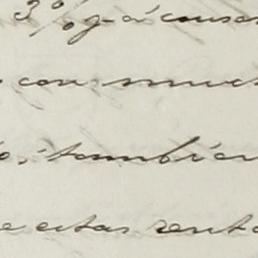 3% y á causa
con muc
también
estas renta